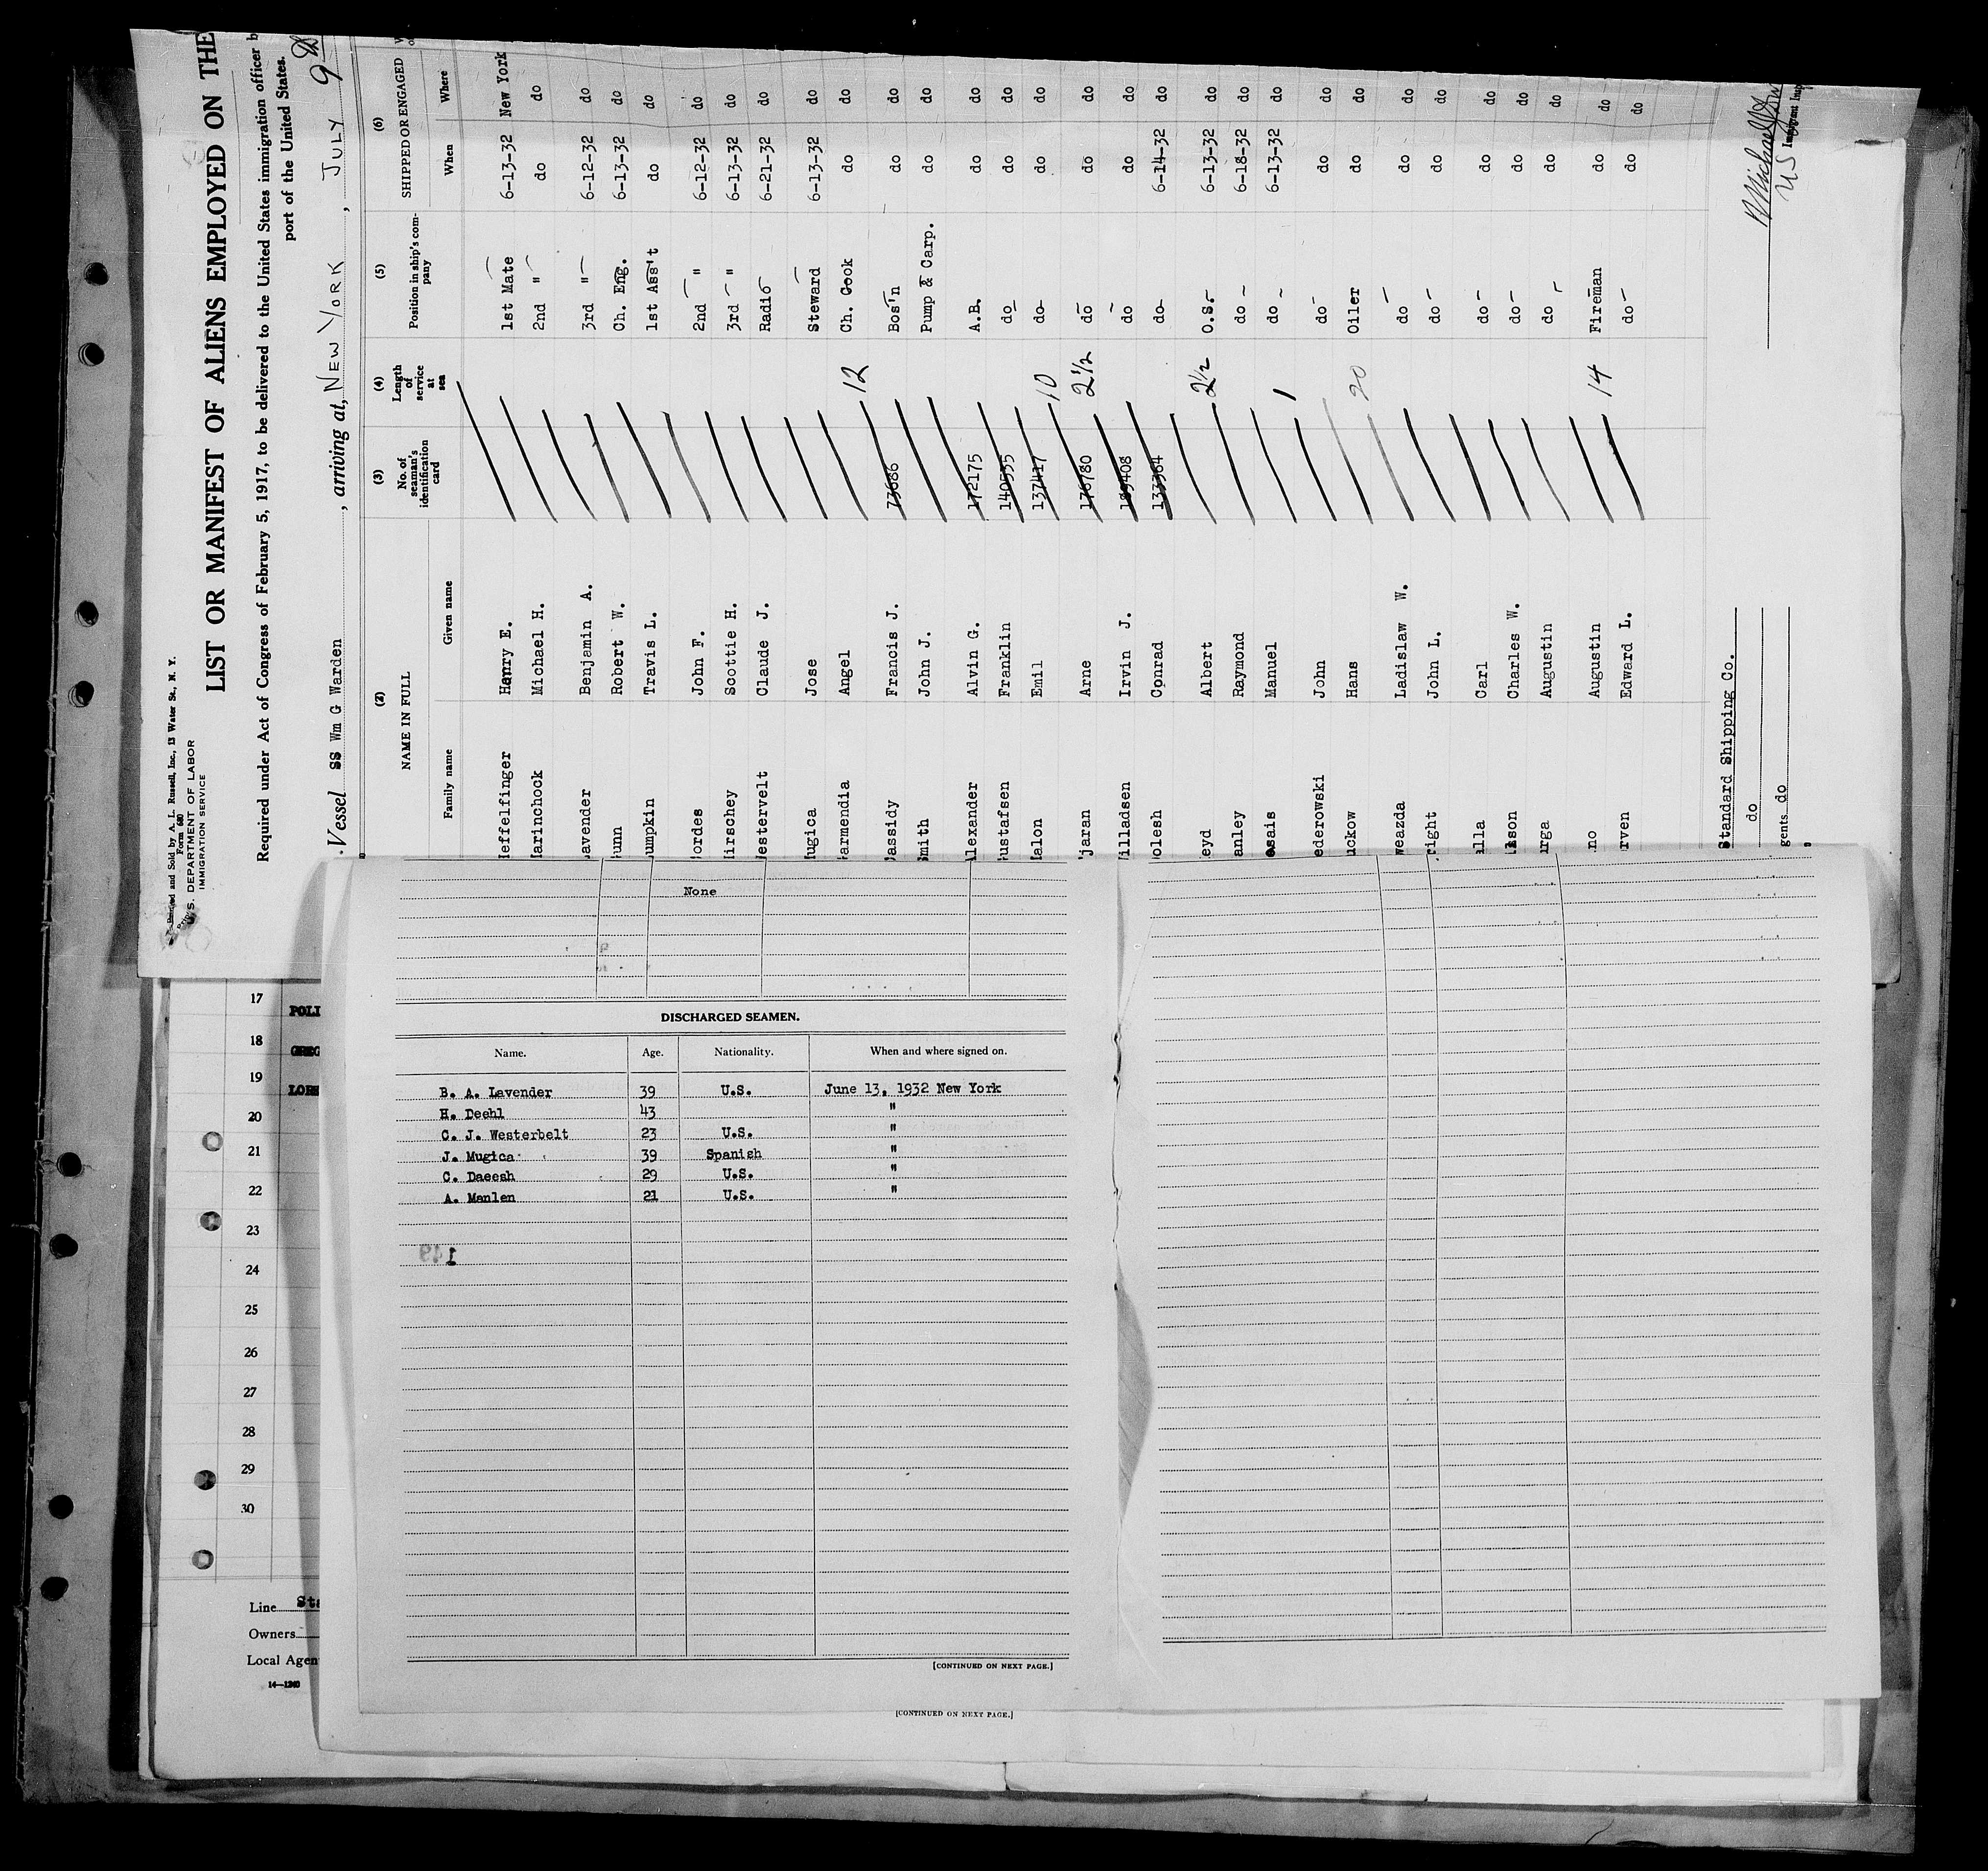 Printed and Sold by A. L. Russell, Inc., 13 Water St., N. Y.
Form 680
U. S. DEPARTMENT OF LABOR
IMMIGRATION SERVICE
LIST OR MANIFEST OF ALIENS EMPLOYED ON THE
Required under Act of Congress of February 5, 1917, to be delivered to the United States immigration officer b
port of the United States.
Vessel SS Wm G Warden , arriving at, NEW YORK , JULY 9th
(2) (3) (4) (5) (6)
NAME IN FULL No. of seaman's identification card Length of service at sea Position in ship's company SHIPPED OR ENGAGED
Family name Given name When Where
effelfinger Henry E. 1st Mate 6-13-32 New York
arinchock Michael H. 2nd " do do
avender Benjamin A. 3rd " 6-12-32 do
unn Robert W. Ch. Eng. 6-13-32 do
umpkin Travis L. 1st Ass't do do
ordes John F. 2nd " 6-12-32 do
irschey Scottie H. 3rd " 6-13-32 do
estervelt Claude J. Radio 6-21-32 do
ugica Jose Steward 6-13-32 do
armendia Angel 12 Ch. Cook do do
assidy Francis J. 73686 Bos'n do do
mith John J. Pump & Carp. do do
lexander Alvin G. 172175 A.B. do do
ustafsen Franklin 140555 do do do
alon Emil 137417 10 do do do
jaran Arne 176780 2 1/2 do do do
illadsen Irvin J. 189408 do do do
olesh Conrad 133364 do 6-14-32 do
eyd Albert 2 1/2 O.S. 6-13-32 do
anley Raymond do 6-18-32 do
essais Manuel 1 do 6-13-32 do
ederowski John do do do
uckow Hans 20 Oiler do do
weazda Ladislaw W. do do do
right John L. do do do
alla Carl do do do
lson Charles W. do do do
urga Augustin do do do
no Augustin 14 Fireman do do
rven Edward L. do do do
Standard Shipping Co.
do
gents. do
US
None
DISCHARGED SEAMEN.
Name. Age. Nationality. When and where signed on.
B. A. Lavender 39 U.S. June 13, 1932 New York
H. Deehl 43 "
C. J. Westerbelt 23 U.S. "
J. Mugica 39 Spanish "
C. Daeesh 29 U.S. "
A. Manlen 21 U.S. "
[CONTINUED ON NEXT PAGE.]
[CONTINUED ON NEXT PAGE.]
17 POLI
18 GREG
19
20
21
22
23
24
25
26
27
28
29
30
Line Sta
Owners
Local Agen
14—1240